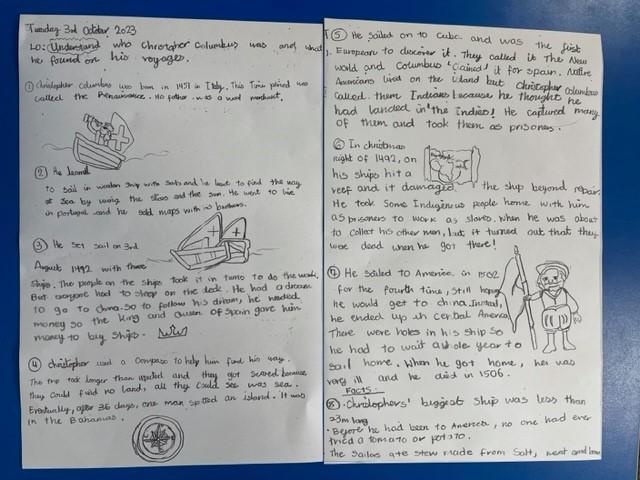 Tuesday 3rd October 2023
LO: Understand who Christopher Columbus was and what
he found on his voyages.
① Christopher Columbus was born in 1451 in Italy. This Time period was
called the Renaissance. His father was a wool merchant.
② He learned
to sail in wooden ship with sails and he learnt to find the way
at sea by using the stars and the sun. He went to live
in portugal and he sold maps with his brothers.
③ He set sail on 3rd
August 1492 with three
ships. The people on the ships took it in turns to do the work.
But everyone had to sleep on the deck. He had a dream
to go to china. so to follow his dream, he needed
money so the king and Queen of Spain gave him
money to buy ships.
④ christopher used a Compass to help him find his way.
The trip took longer than expected and they got scared because
they could find no land, all they could see was sea.
Eventually, after 36 days, one man spotted an island. It was
in the Bahamas.
⑤ He sailed on to Cuba and was the first
European to discover it. They called it the New
world and Columbus 'Claimed' it for spain. Native
Americans lived on the island but Christopher Columbus
called them Indians because he thought he
had landed in 'the Indies'! He captured many
of them and took them as prisoners.
⑥ In christmas
night of 1492, on
his ships hit a
reef and it damaged the ship beyond repair.
He took Some Indigenous people home with him
as prisoners to work as slaves. When he was about
to collect his other men, but it turned out that they
were dead when he got there!
⑦ He Sailed to America in 1502
for the fourth time, still hoping
he would get to china. Instead,
he ended up in central America
There were holes in his ship so
he had to wait a whole year to
sail home. When he got home, he was
very ill and he died in 1506.
FACTS:
⑧ • Christophers' biggest ship was less than
23m long
• Before he had been to America, no one had ever
tried a tomato or potato.
The Sailors ate stew made from Salt, meat and